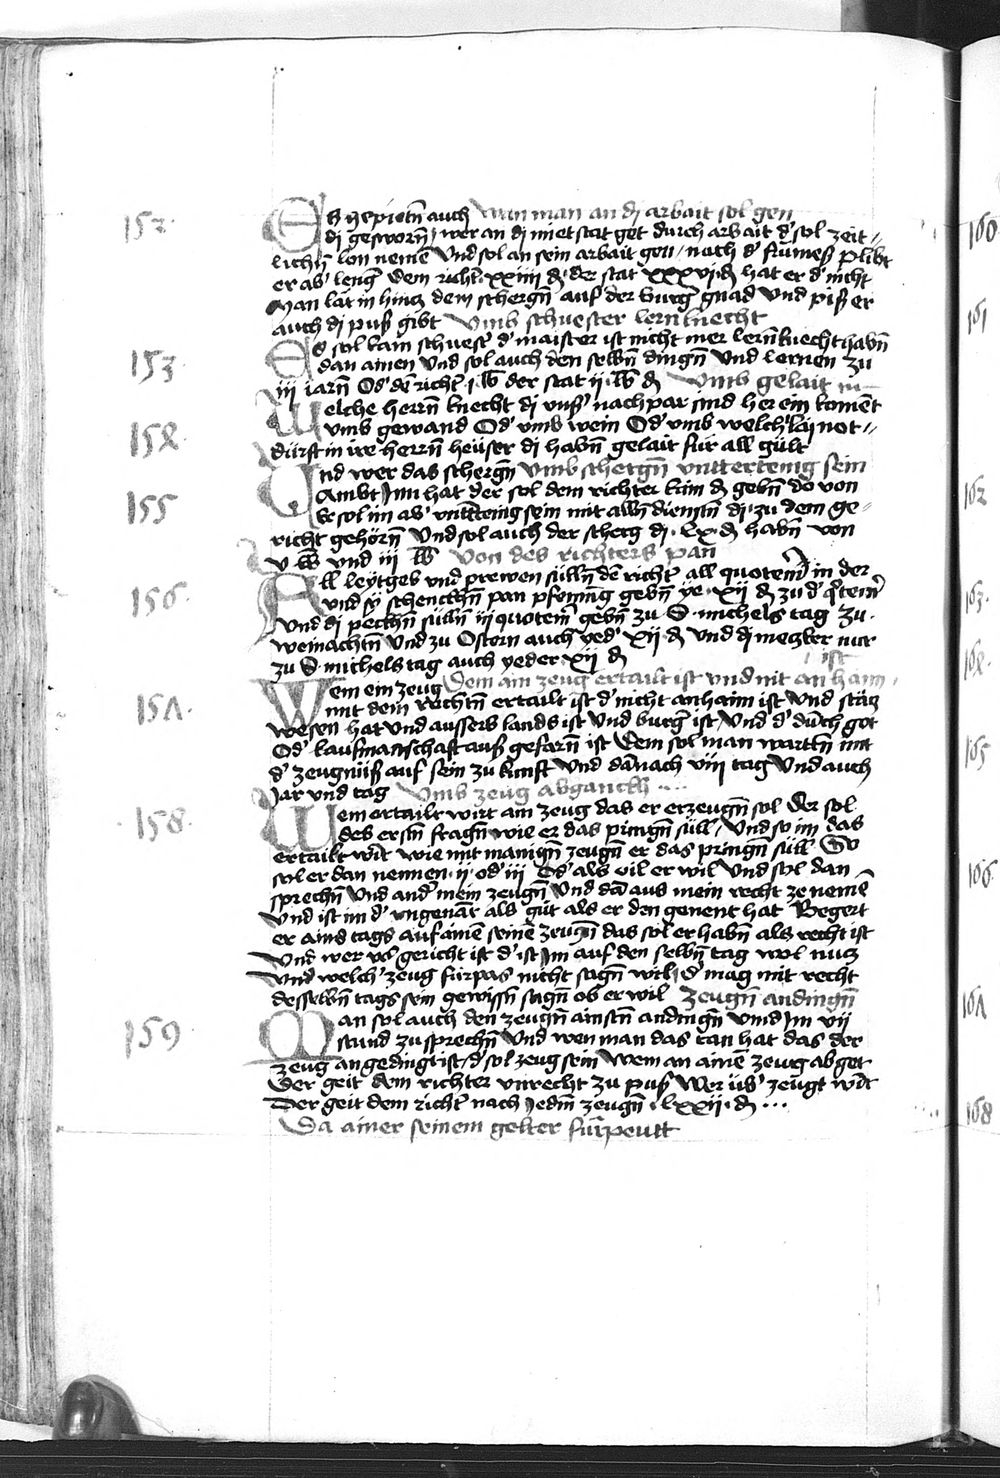 152 Es gepietn̄ auch Wan man an dj arbait sol gen
dj gesworn̄ wer an dj mietstat get durch arbait d' sol zeit=
lichn̄ lon nemē Vnd sol an sein arbait gen / nach d' frūmess plibt
er ab' leng' dem richt' xxiiii ₰ der stat xxxvj ₰ hat er d' nicht
Man lāt in hinz dem schergn̄ auf der burg' gnad Vnd piss er
auch dj puss gibt Vmb schuester lernknecht
153 Es sol kain schuest' d' maister ist nicht mer lern̄knecht habn̄
dan ainen Vnd sol auch den selbn̄ dingn̄ Vnd lernen zu
iii iarn̄ Od' dē richt' j lb der stat ii lb ₰ Vmb gelait in
154 Welche herrn̄ knecht dj vnss' nachpar sind her ein komēt
vmb gewand Od' vmb wein Od' vmb welch'laj not=
dürft in ire herrn̄ heüser dj habn̄ gelait für all gült
155 Vnd wer das schergn̄ Vmb schergn̄ vnttertenig sein
Ambt Inn hat der sol dem richter kain ₰ gebn̄ do von
Er sol im ab' vnttēnig sein mit alln̄ dienstn̄ dj zu dem ge=
richt gehörn̄ Vnd sol auch der scherg dj lx ₰ habn̄ von
v lb vnd iii lb Von des richters pan
156 All leytgeb vnd prewen sülln̄ dē richt' all quotem̄ in der
vnd sy schenckhn̄ pan pfening gebn̄ ye xii ₰ zu d' q'tem̄
Vnd dj peckhn̄ sülln̄ iij quotem̄ gebn̄ zu S michels tag zu
weinachtn̄ Vnd zu Ostern auch yed' xij ₰ Vnd dj mezker nur
zu S michels tag auch yeder xij ₰
ist
157 Wem ein zeug Dem ain zeug ertailt ist vnd nit an haim
mit dem rechtn̄ ertailt ist d' nicht anhaim ist Vnd stāz
wesen hat Vnd aussers lands ist Vnd burg' ist / Vnd d' durch got
Od' kaufmanschaft auss gefarn̄ ist Dem sol man warttn̄ mit
d' zeugnüss auf sein zu kunft Vnd dānach viii tag Vnd auch
Jar vnd tag Vmb zeug abganckh ....
158 Wem ertailt wirt ain zeug das er erzeugn̄ sol Der sol
des erstn̄ fragn̄ wie er das pringn̄ süll / Vnd so im das
ertailt wirt wie mit manign̄ zeugn̄ er das pringn̄ süll So
sol er dan nennen ii od' iii Od' als vil er wil Vnd sol dan
sprechn̄ Vnd and' mein zeugn̄ Vnd dā aus mein recht ze nemē
Vnd ist im d' vngenāt als gut als er den genent hat Begert
er ains tags auf ainē seinē zeugn̄ das sol er habn̄ als recht ist
Vnd wer vor gericht ist d' ist Im auf den selbn̄ tag wol nuz
Vnd welch' zeug fürpas nicht sagn̄ wil d' mag mit recht
desselbn̄ tags sein gewissn̄ sagn̄ ob er wil Zeugn̄ andingn̄
159 Man sol auch den zeugn̄ ainstn̄ andingn̄ vnnd Im vii
stund zu sprechn̄ Vnd wen man das tan hat das der
zeug angedingt ist / d' sol zeug sein Wem an ainē zeug abget
Der geit dem richter vnrecht zu puss Wer üb' zeugt wirt
Der geit dem richt' nach Jedm̄ zeugn̄ lxxii ₰ ...
Da ainer seinem gelter fürpeutt
160
161
162
163
164
165
166
167
168